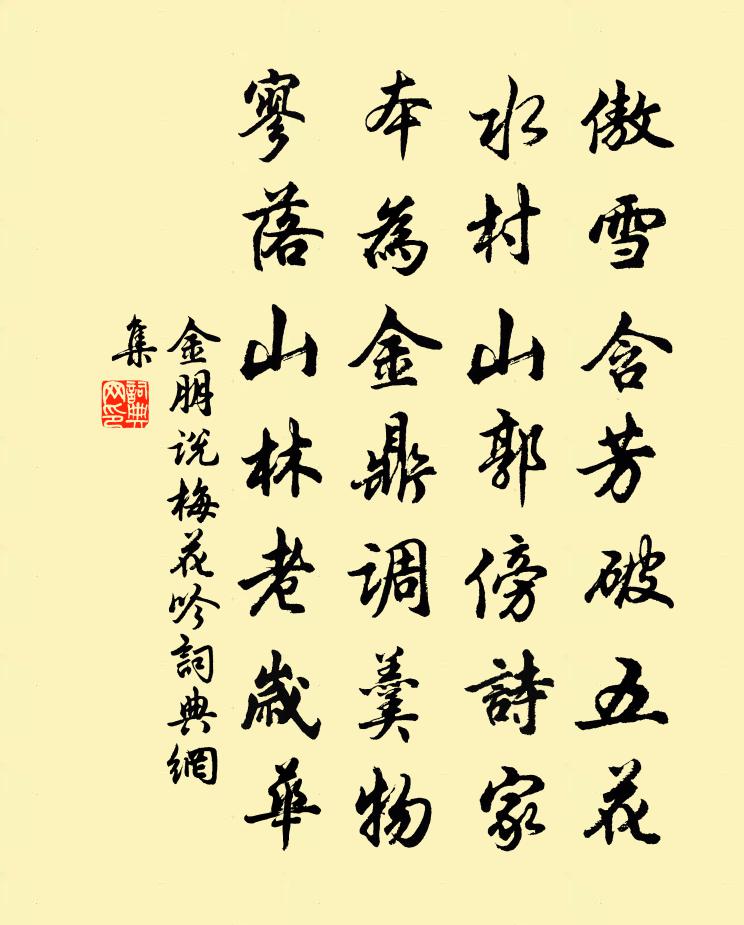 傲雪含芳破五花
水村山郭傍詩家
本為金鼎調羹物
寥落山林老歲華
金朋説梅花吟詞典網
集
詞典
网印